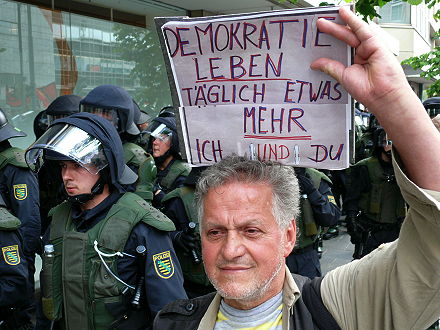 DEMOKRATIE
LEBEN
TÄGLICH ETWAS
MEHR
ICH UND DU
POLIZEI